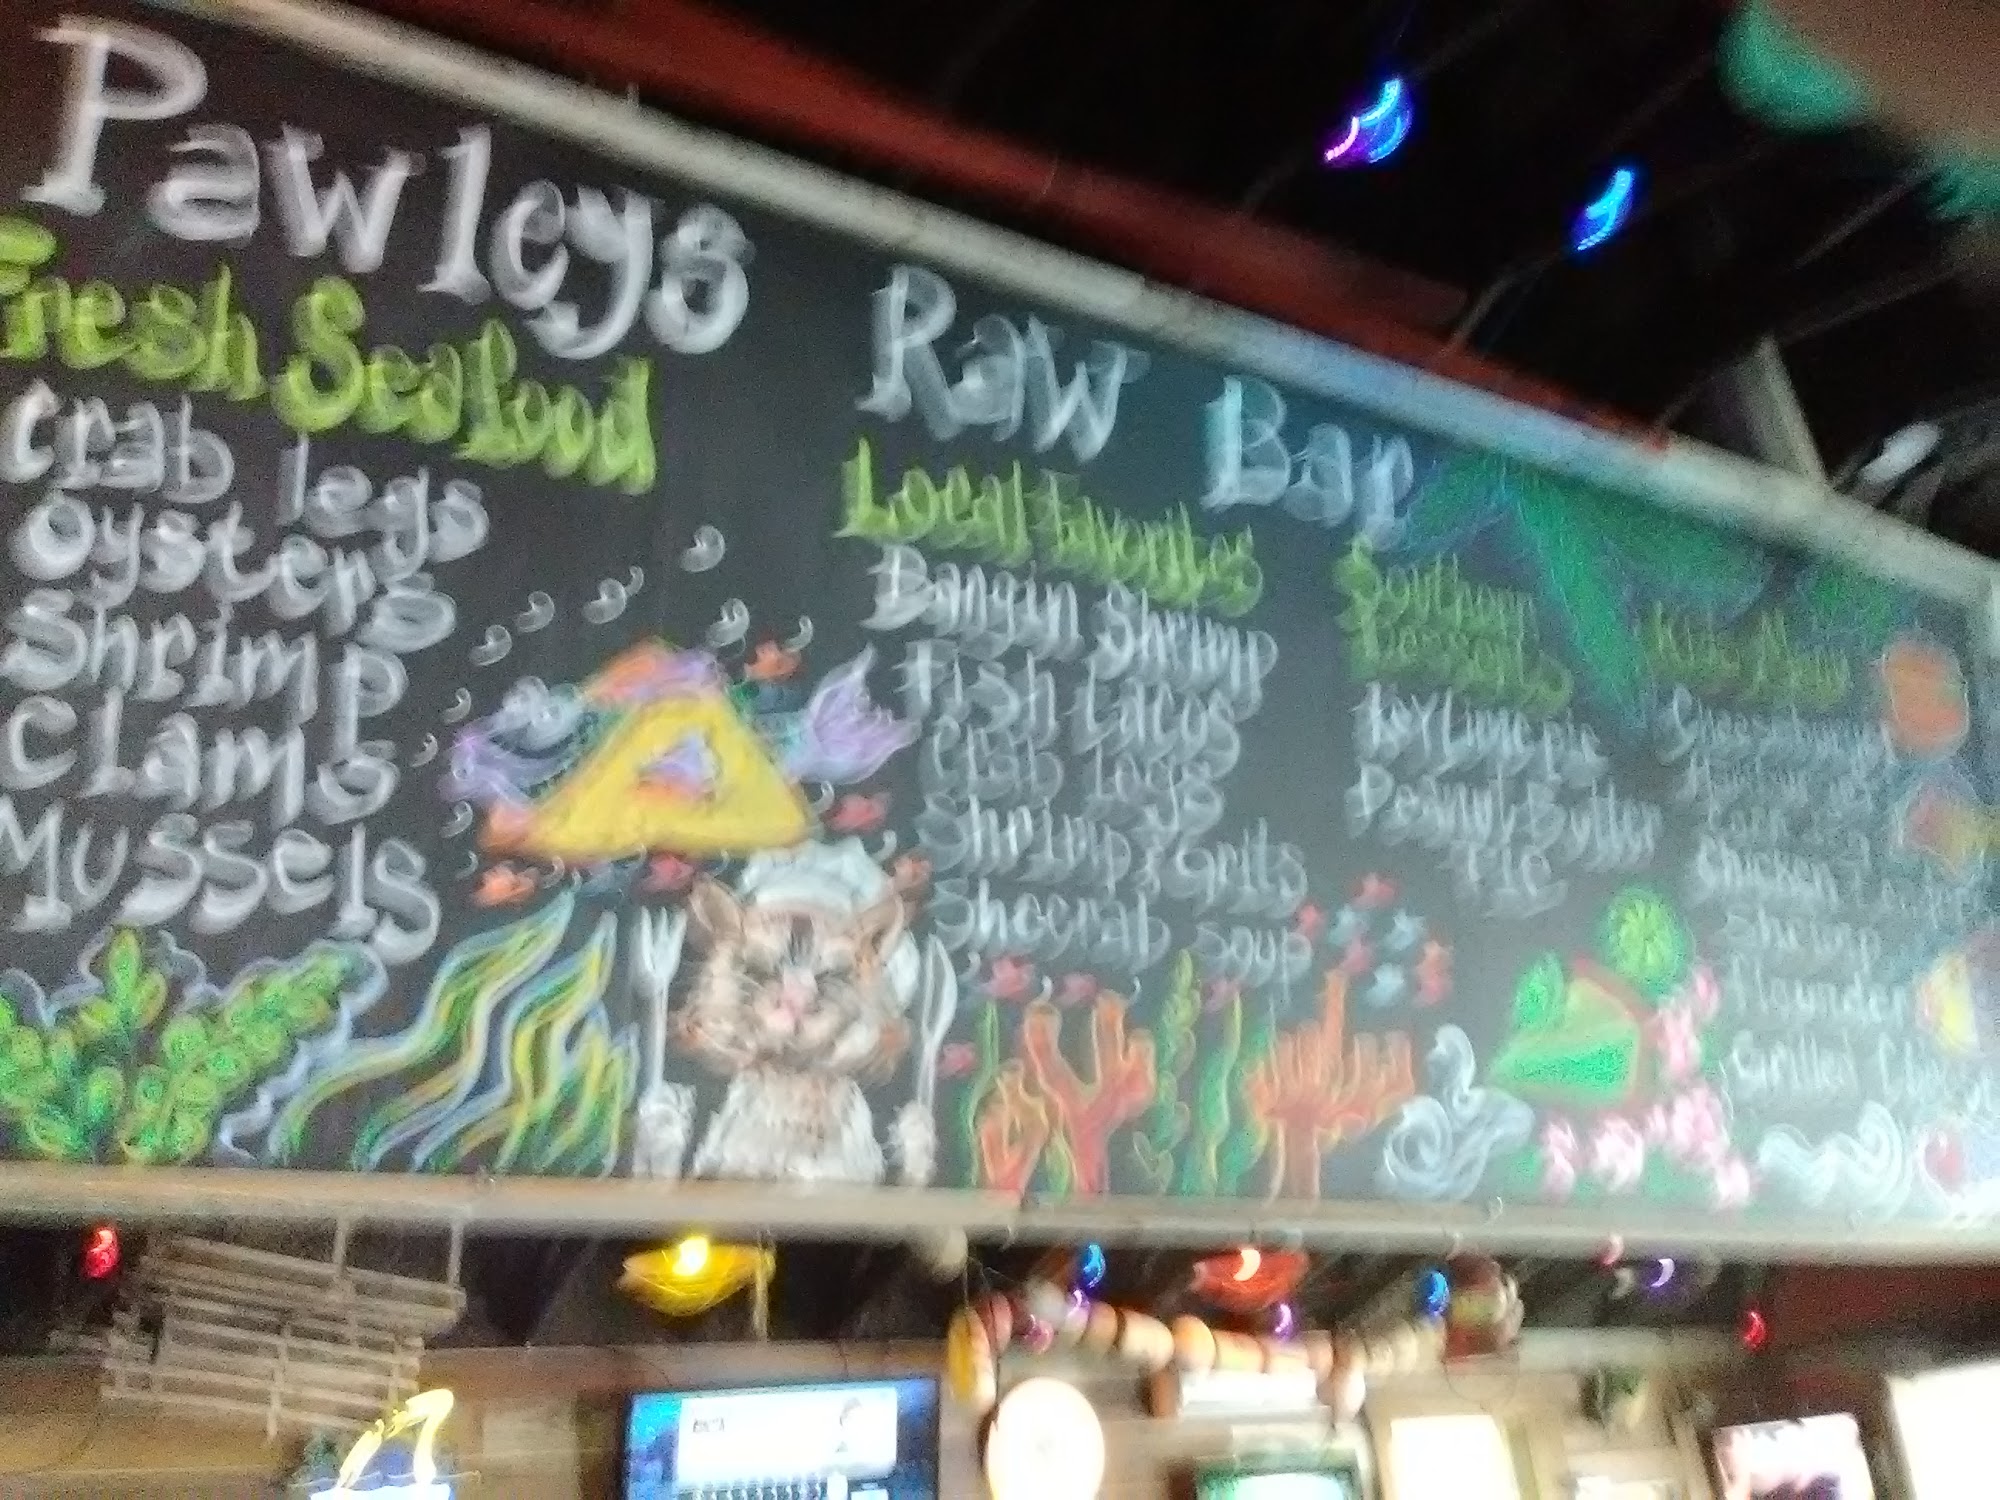 Pawleys Raw Bar
Fresh Seafood
Crab legs
Oysters
Shrimp
Clams
Mussels
Local Favorites
Bangin Shrimp
Fish tacos
Crab legs
Shrimp & Grits
She crab soup
Southern
Desserts
Key Lime pie
Peanut Butter
Pie
Kids Menu
Cheeseburger
Chicken
Shrimp
Flounder
Grilled